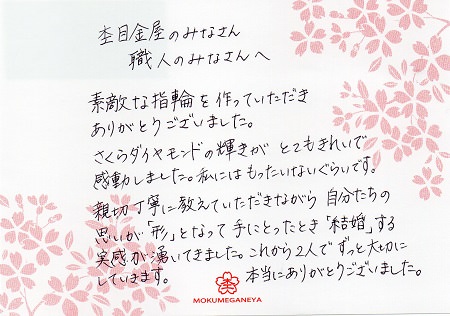 杢目金屋のみなさん
職人のみなさんへ
素敵な指輪を作っていただき
ありがとうございました。
さくらダイヤモンドの輝きが とてもきれいで
感動しました。私にはもったいないぐらいです。
親切丁寧に教えていただきながら 自分たちの
思いが「形」となって 手にとったとき「結婚」する
実感が湧いてきました。これから2人で ずっと大切に
していきます。 本当にありがとうございました。
MOKUMEGANEYA